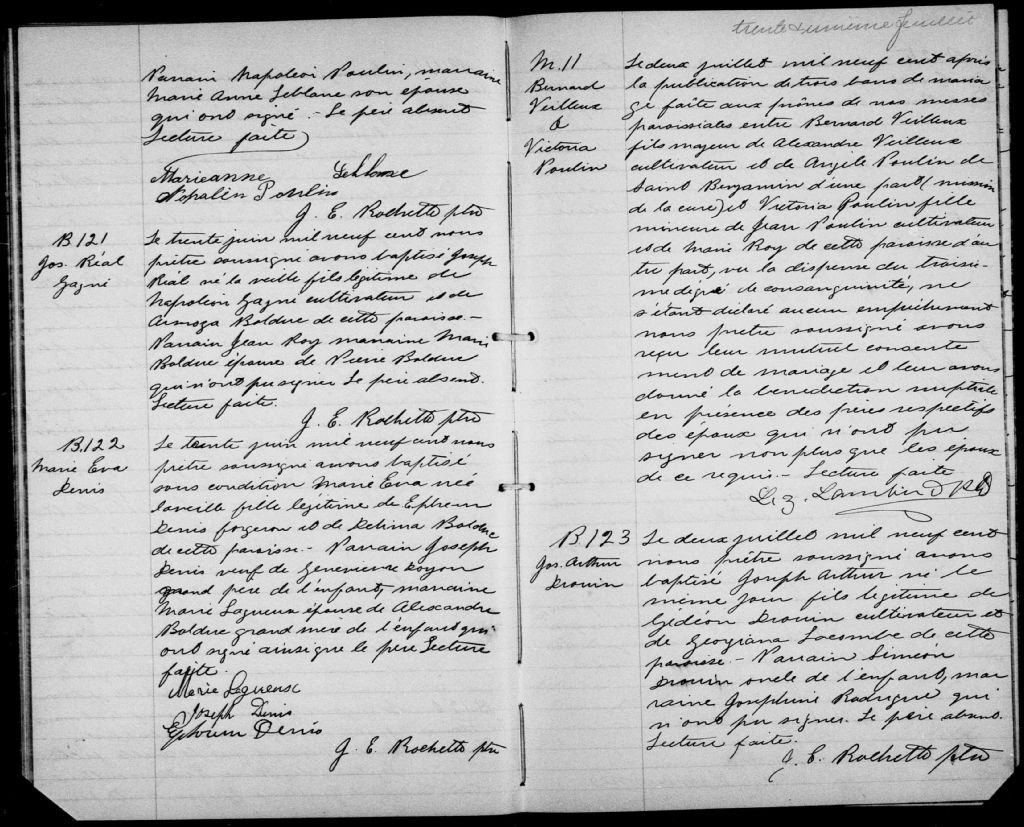 Parrain Napoléon Poulin, marraine
Marie Anne Leblanc son épouse
qui ont signé. - Le père absent
Lecture faite
Marieanne Leblanc
Napolin Poulin
J. E. Rochette ptre
B 121
Jos. Réal
Gagné
Le trente juin mil neuf cent nous
prêtre soussigné avons baptisé Joseph
Réal né la veille fils légitime de
Napoléon Gagné cultivateur et de
Bolduc de cette paroisse. -
Parrain Jean Roy marraine Marie
Bolduc épouse de Pierre Bolduc
qui n'ont pu signer Le père absent.
Lecture faite.
J. E. Rochette ptre
B.122
Marie Eva
Denis
Le trente juin mil neuf cent nous
prêtre soussigné avons baptisé
sous condition Marie Eva née
la veille fille légitime de Ephrem
Denis forgeron et de Délima Bolduc
de cette paroisse. - Parrain Joseph
Denis veuf de Genevieve Doyon
grand père de l'enfant, marraine
Marie Lagueux épouse de Alexandre
Bolduc grand mère de l'enfant qui
ont signé ainsi que le père Lecture
faite.
Marie Lagueux
Joseph Denis
Ephrem Denis
J. E. Rochette ptre
trente & unième feuillet
M. 11
Bernard
Veilleux
&
Victoria
Poulin
Le deux juillet mil neuf cent après
la publication de trois bans de maria
ge faite aux prônes de nos messes
paroissiales entre Bernard Veilleux
fils majeur de Alexandre Veilleux
cultivateur et de Angele Poulin de
Saint Benjamin d'une part (mission
de la cure) et Victoria Poulin fille
mineure de Jean Poulin cultivateur
et de Marie Roy de cette paroisse d'au
tre part, vu la dispense du troisiè-
me degré de consanguinité, ne
s'étant déclaré aucun empêchement
nous prêtre soussigné avons
reçu leur mutuel consente
ment de mariage et leur avons
donné la bénédiction nuptiale
en présence des pères respectifs
des époux qui n'ont pu
signer non plus que les époux
de ce requis. - Lecture faite
Lambert
B 123
Jos. Arthur
Drouin
Le deux juillet mil neuf cent
nous prêtre soussigné avons
baptisé Joseph Arthur né le
même jour fils légitime de
Gédéon Drouin cultivateur et
de Georgiana Lacombe de cette
paroisse. - Parrain Siméon
Drouin oncle de l'enfant, mar
raine Josephine Rodrigue qui
n'ont pu signer. Le père absent.
Lecture faite.
J. E. Rochette ptre